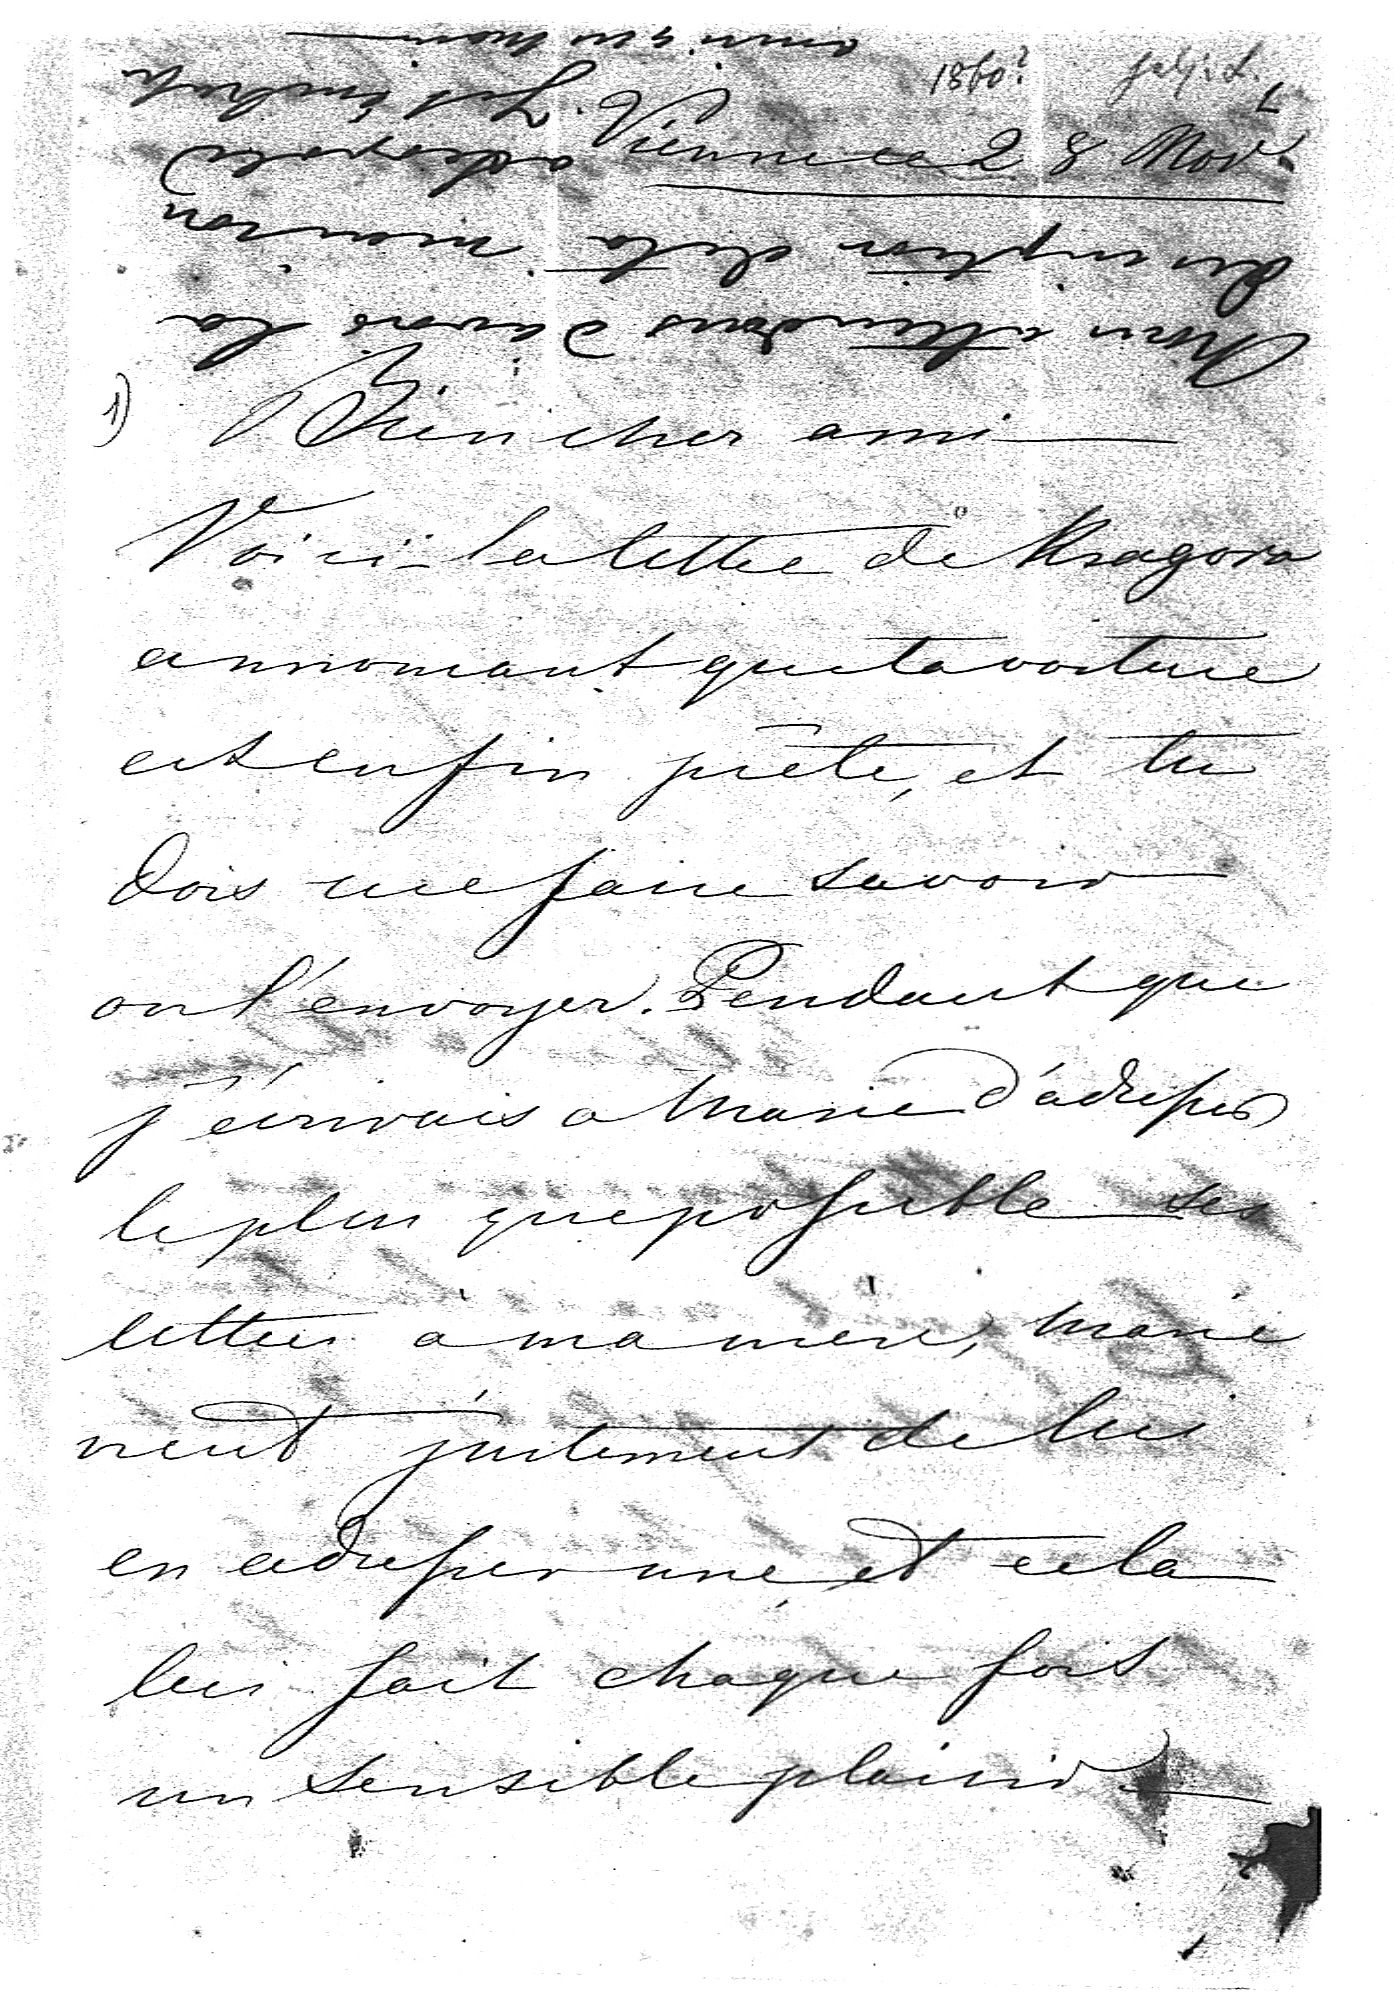 1860?
Vienne ce 28 Nov.
1)
Bien cher ami
Voici la lettre de Kragora
annonçant que ta voiture
est enfin prête, et tu
dois me faire savoir
ou l'envoyer. Pendant que
j'écrivais a Marie d'adresser
le plus que possible ses
lettres à ma mère, Marie
vient justement de lui
en adresser une, et cela
lui fait chaque fois
un sensible plaisir
Nous attendons d'avoir la
description de ta maison